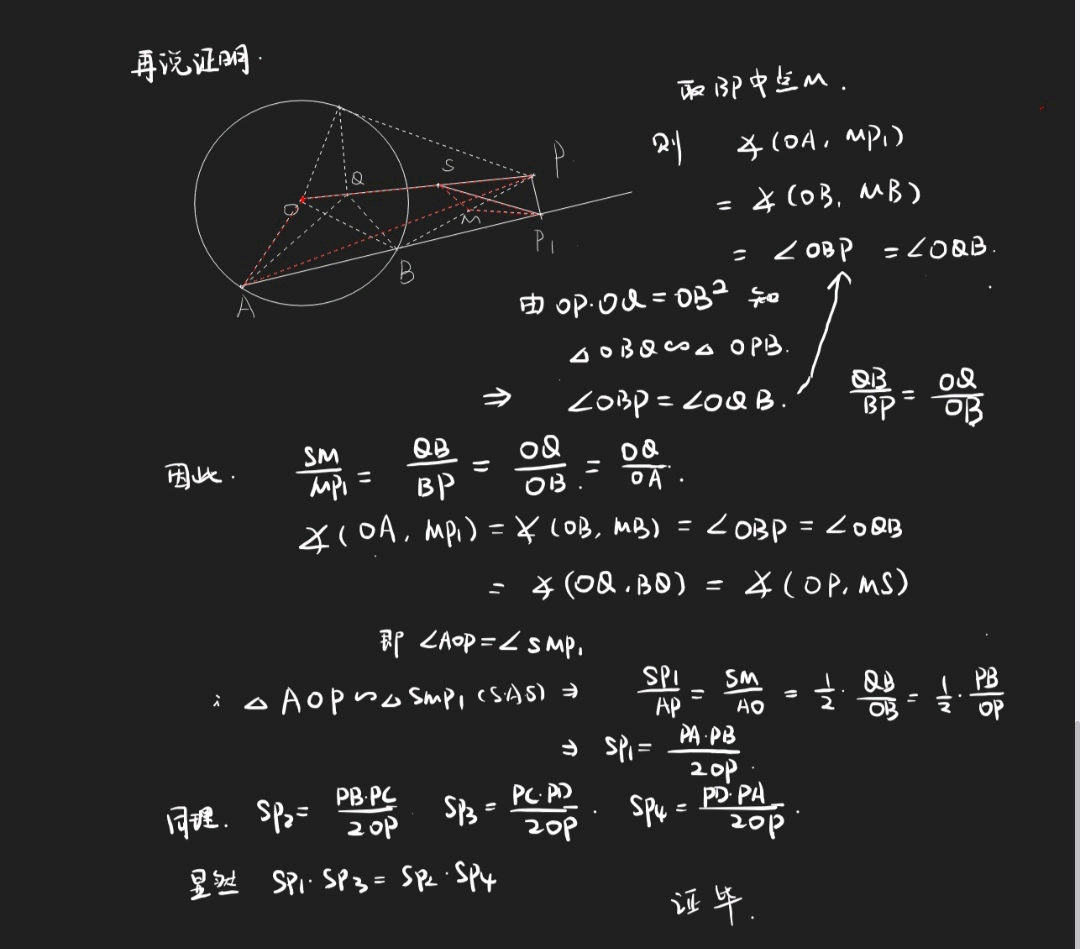 再说证明.
取BP中点M.
则 ∡(OA, MP₁)
= ∡(OB, MB)
= ∠OBP = ∠OQB.
由 OP·OQ = OB² 知
△OBQ ∽ △OPB.
⇒ ∠OBP = ∠OQB. QB/BP = OQ/OB
因此. SM/MP₁ = QB/BP = OQ/OB. = OQ/OA.
∡(OA, MP₁) = ∡(OB, MB) = ∠OBP = ∠OQB
= ∡(OQ, BQ) = ∡(OP, MS)
即 ∠AOP = ∠SMP₁
∴ △AOP ∽ △SMP₁ (S.A.S) ⇒ SP₁/AP = SM/AO = 1/2 · QB/OB = 1/2 · PB/OP
⇒ SP₁ = PA·PB/2OP.
同理. SP₂ = PB·PC/2OP SP₃ = PC·PD/2OP. SP₄ = PD·PA/2OP.
显然 SP₁·SP₃ = SP₂·SP₄
证毕.
O
Q
S
P
M
P₁
B
A